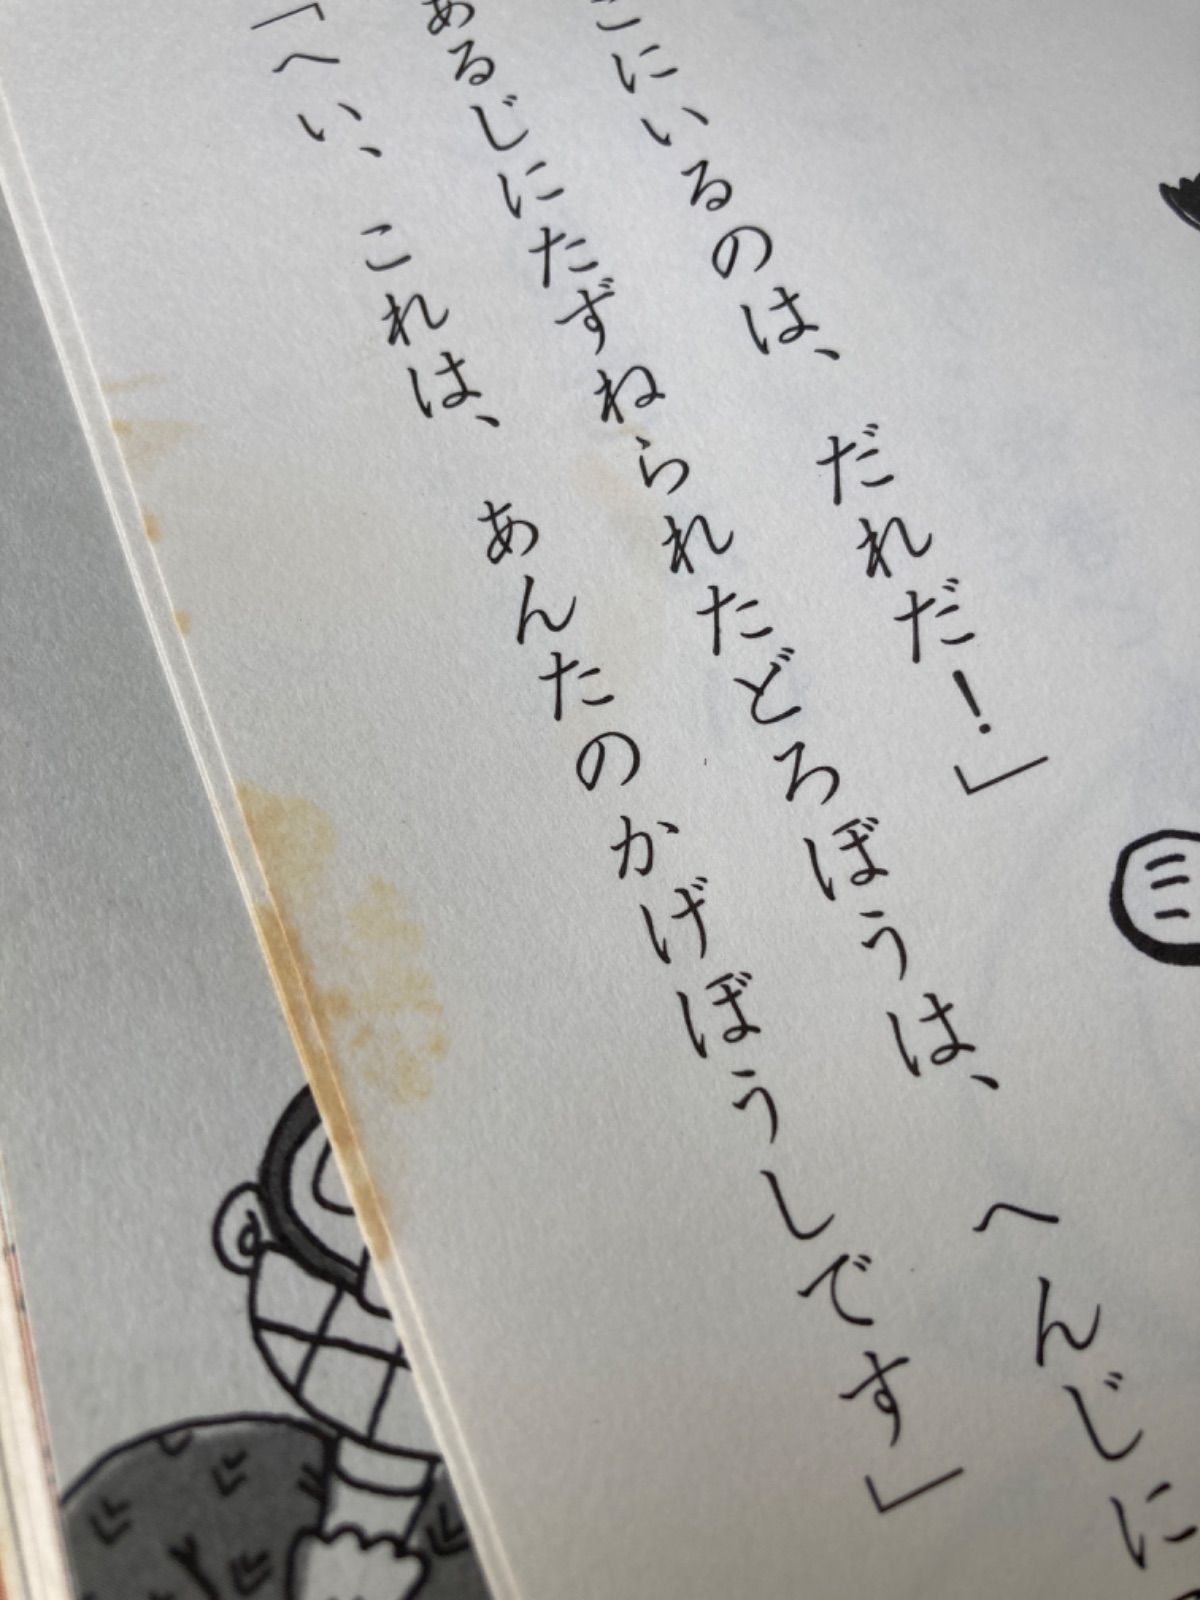 こにいるのは、　だれだ！」
あるじにたずねられたどろぼうは、　へんじに
「へい、　これは、　あんたのかげぼうしです」